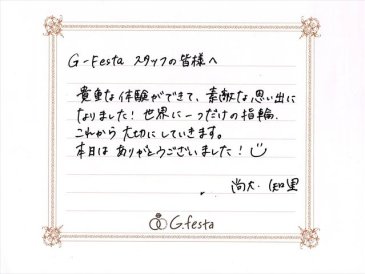 G-Festa スタッフの皆様へ
貴重な体験ができて、素敵な思い出に
なりました！世界に一つだけの指輪、
これから大切にしていきます。
本日は ありがとうございました！
尚大・知里
G.festa